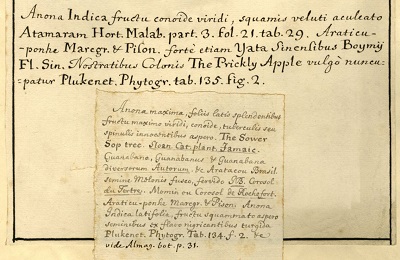 Anona Indica fructu conoide viridi, squamis veluti aculeato
Atamaram Hort. Malab. part. 3. fol. 21. tab. 29. Araticu-
-ponhe Maregr. & Pison. fortè etiam Yata Sinensibus Boymij
Fl. Sin. Nostratibus Colonis The Prickly Apple vulgò nuncu-
-patur Plukenet. Phytogr. tab. 135. fig. 2.
Anona maxima, foliis latis splendentibus
fructu maximo viridi, conoide, tuberculis seu
spinulis innocentibus aspero. The Sower
Sop tree. Sloan Cat. plant. Jamaic.
Guanabano, Guanabanus & Guanabana
diversorum Autorum, & Aratacou Brasil.
semine Melonis fusco, foetido Corosol
du Tertre. Momin ou Corosol de Rochefort.
Araticu-ponhe Maregr. & Pison. Anona
Indica latifolia, fructu squammato aspero
seminibus ex flavo nigricantibus turgida
Plukenet. Phytogr. Tab. 134. f. 2. &c
vide Almag. bot. p. 31.